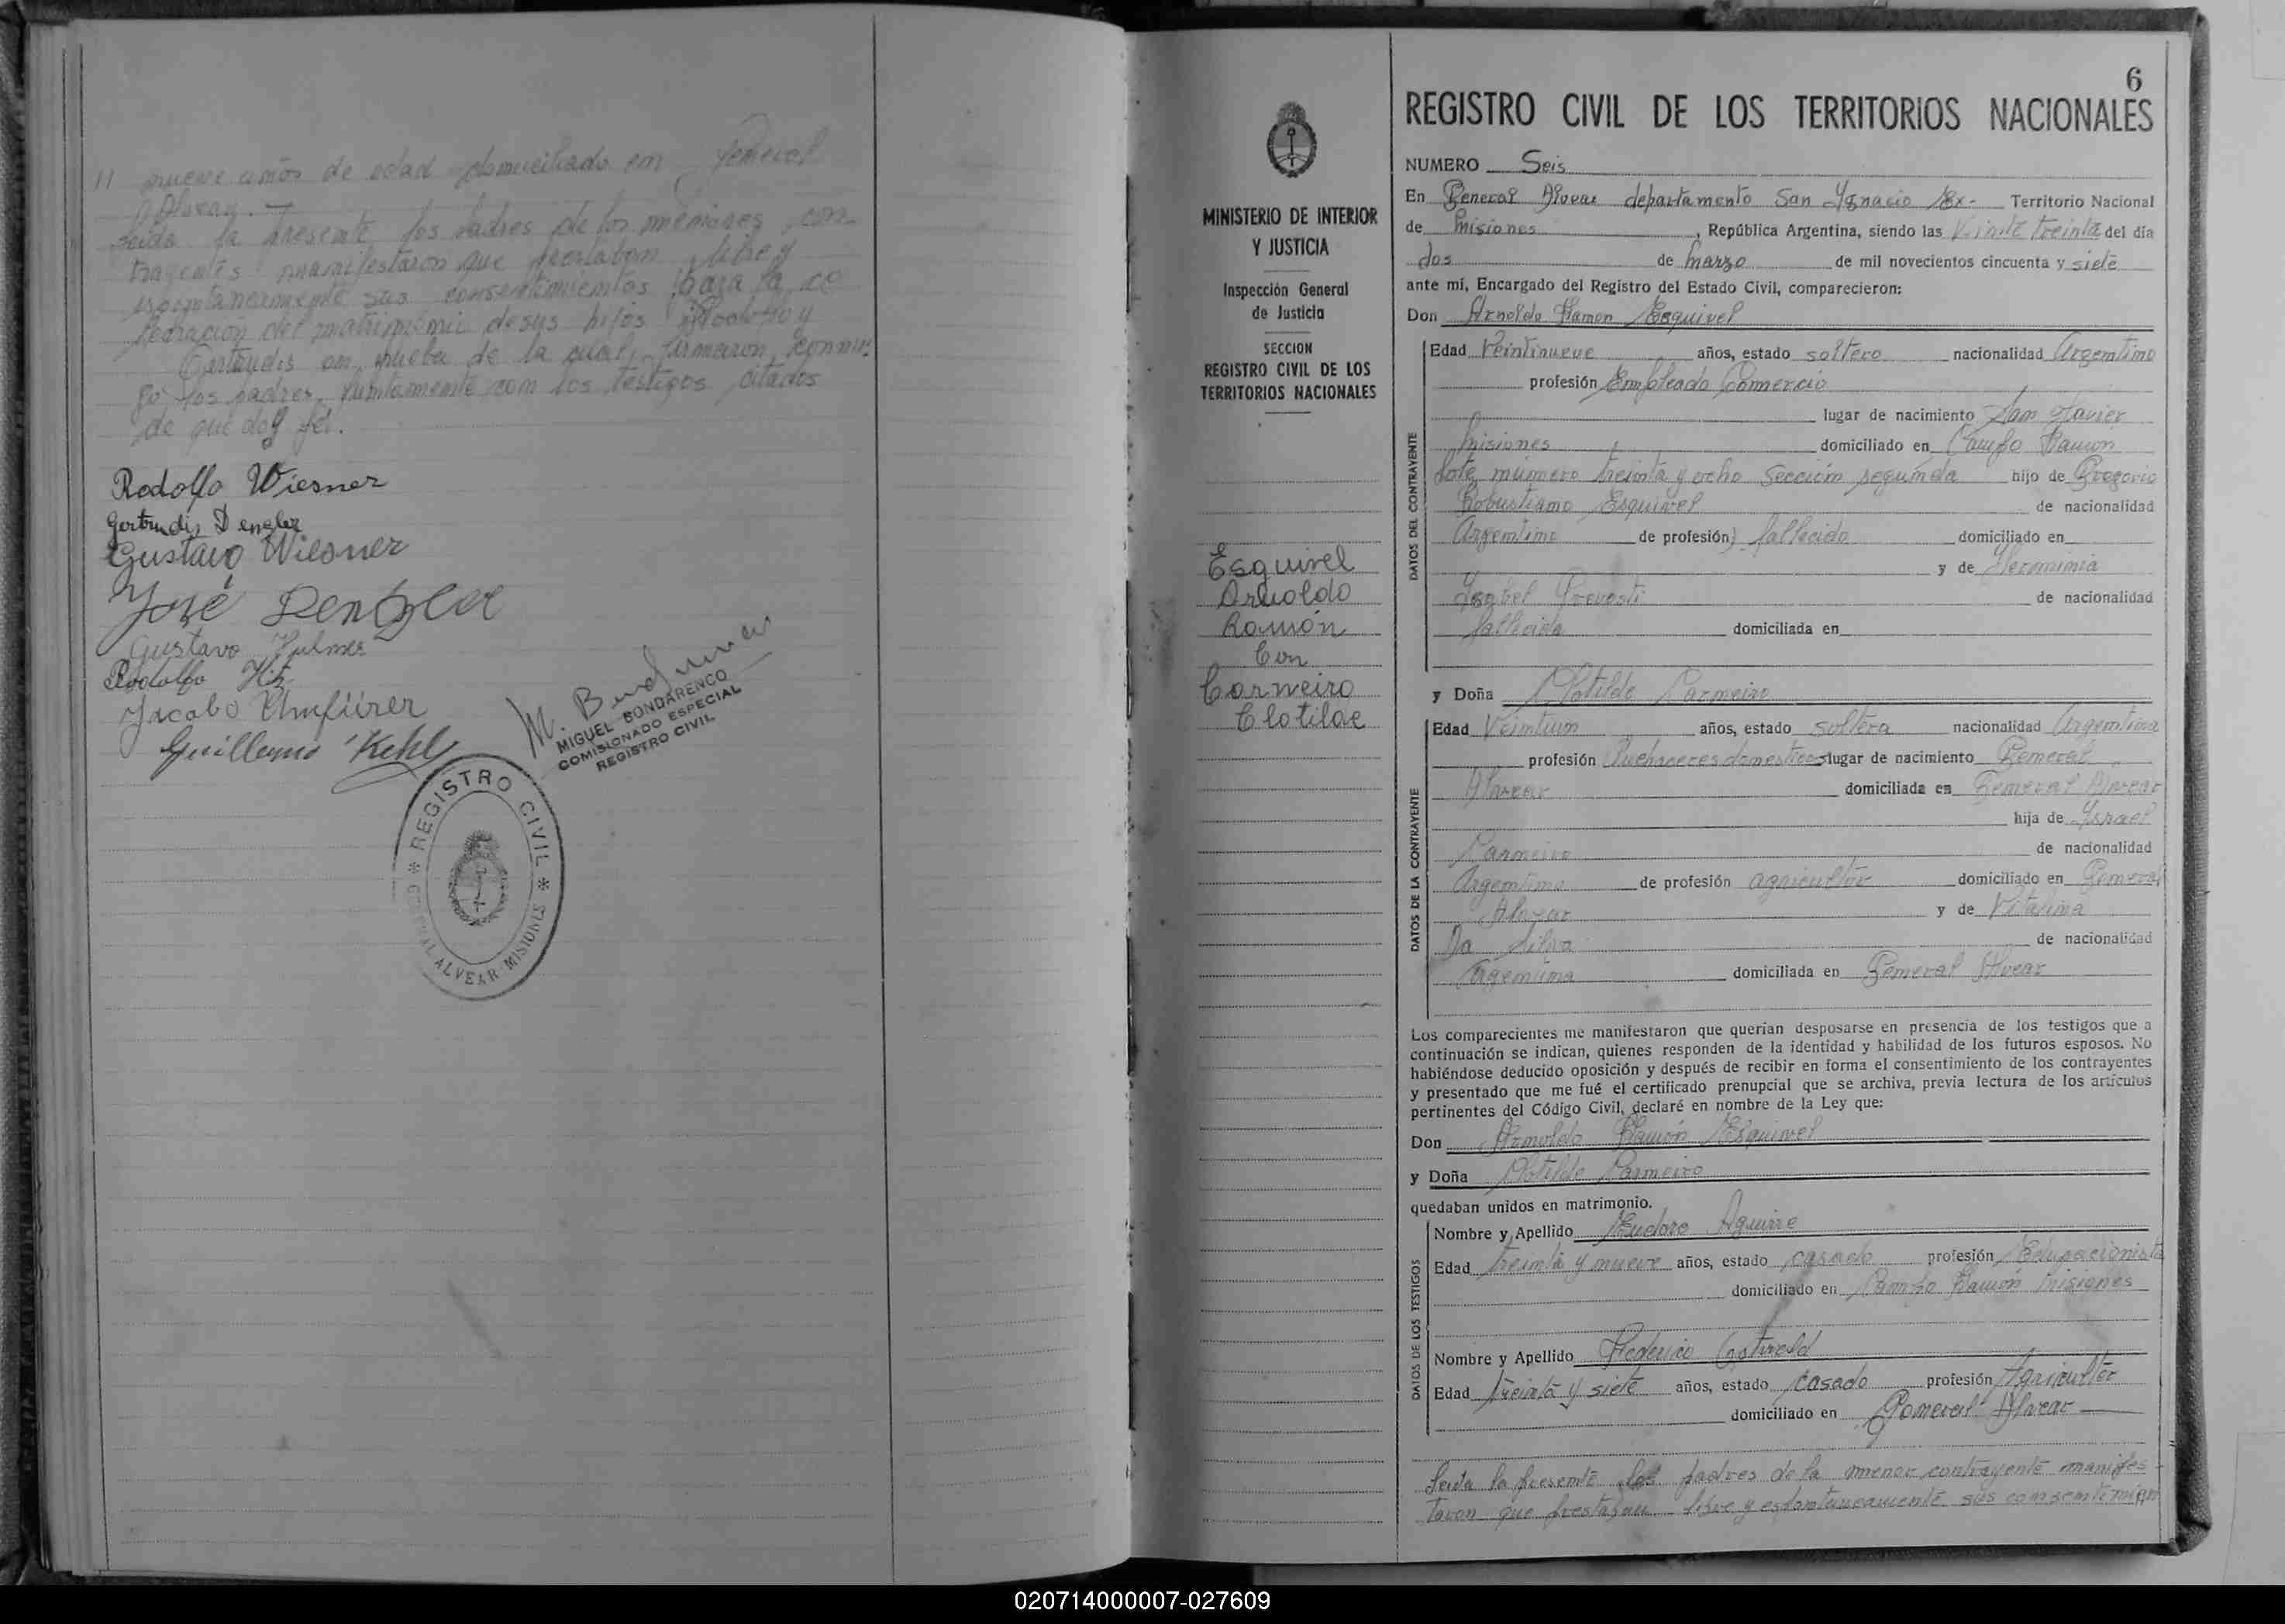 nueve años de edad domiciliado en General
Alvear.—
Leida la presente los padres de los menores con-
trayentes manifestaron que prestaban libre y
espontaneamente sus consentimientos para la ce
lebracion del matrimonio de sus hijos Rodolfo y
Gertrudis en prueba de la cual, firmaron, conmi-
go los padres, juntamente con los testigos citados
de que doy fé.
Rodolfo Wiesner
Gertrudis Dengler
Gustavo Wiesner
José Dengler
Gustavo
Rodolfo
Jacobo Umfürer
Guillermo Kehl
MIGUEL BONDARENCO
COMISIONADO ESPECIAL
REGISTRO CIVIL
* REGISTRO CIVIL *
GENERAL ALVEAR MISIONES
MINISTERIO DE INTERIOR
Y JUSTICIA
Inspección General
de Justicia
SECCION
REGISTRO CIVIL DE LOS
TERRITORIOS NACIONALES
Esquivel
Arnoldo
Ramón
Con
Carneiro
Clotilde
6
REGISTRO CIVIL DE LOS TERRITORIOS NACIONALES
NUMERO Seis
En General Alvear departamento San Ygnacio Ex- Territorio Nacional
de Misiones, República Argentina, siendo las Veinte treinta del día
dos de marzo de mil novecientos cincuenta y siete
ante mí, Encargado del Registro del Estado Civil, comparecieron:
Don Arnoldo Ramon Esquivel
DATOS DEL CONTRAYENTE
Edad Veintinueve años, estado soltero nacionalidad Argentino
profesión Empleado Comercio
lugar de nacimiento San Javier
Misiones domiciliado en Campo Ramon
lote número treinta y ocho Sección segunda hijo de Gregorio
Robustiano Esquivel de nacionalidad
Argentino de profesión fallecido domiciliado en
y de Jeronimia
Ysabel Prevosti de nacionalidad
fallecida domiciliada en
y Doña Clotilde Carneiro
DATOS DE LA CONTRAYENTE
Edad Veintiun años, estado soltera nacionalidad Argentina
profesión Quehaceres domesticos lugar de nacimiento General
Alvear domiciliada en General Alvear
hija de Ysrael
Carneiro de nacionalidad
Argentino de profesión agricultor domiciliado en General
Alvear y de
Da Silva de nacionalidad
Argentina domiciliada en General Alvear
Los comparecientes me manifestaron que querían desposarse en presencia de los testigos que a
continuación se indican, quienes responden de la identidad y habilidad de los futuros esposos. No
habiéndose deducido oposición y después de recibir en forma el consentimiento de los contrayentes
y presentado que me fué el certificado prenupcial que se archiva, previa lectura de los artículos
pertinentes del Código Civil, declaré en nombre de la Ley que:
Don Arnoldo Ramón Esquivel
y Doña Clotilde Carneiro
quedaban unidos en matrimonio.
DATOS DE LOS TESTIGOS
Nombre y Apellido Eudoro Aguirre
Edad treinta y nueve años, estado casado profesión Educacionista
domiciliado en Campo Ramon Misiones
Nombre y Apellido Federico
Edad treinta y siete años, estado casado profesión Agricultor
domiciliado en General Alvear
Leida la presente los padres de la menor contrayente manifes-
taron que prestaban libre y espontaneamente sus consentimien
020714000007-027609